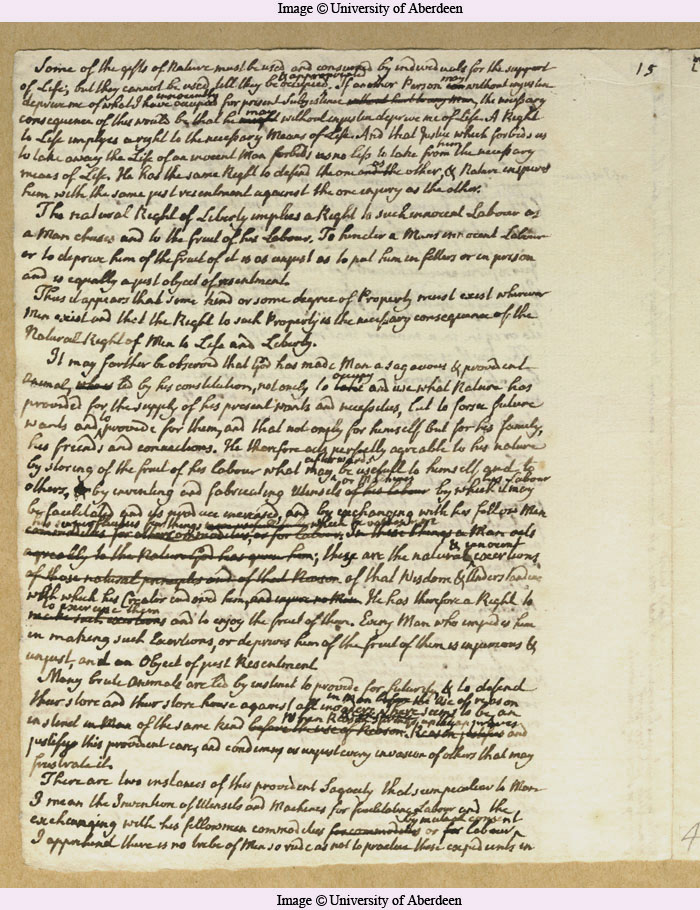 Image © University of Aberdeen
15
Some of the gifts of Nature must be used and consumed by individuals for the support
& appropriated
of Life; but they cannot be used till they be occupied. If another Person may without injustice
innocently
deprive me of what I have occupied for present Subsistence without hurt to any Man, the necessary
may
consequence of this would be that he might without injustice deprive me of Life. A Right
to Life implyes a right to the necessary Means of Life. And that Justice which forbids us
him
to take away the Life of an inocent Man forbids us no less to take from the necessary
as
means of Life. He has the same Right to defend the one and the other, & Nature inspires
him with the same just resentment against the one injury as the other.
The natural Right of Liberty implies a Right to such innocent Labour as
a Man chuses and to the fruit of his Labour. To hinder a Mans innocent Labour
or to deprive him of the fruit of it is as unjust as to put him in fetters or in prison
and is equally a just object of resentment.
Thus it appears that some kind or some degree of Property must exist wherever
Men exist and that the Right to such Property is the necessary consequence of the
Natural Right of Men to Life and Liberty.
It may farther be observed that God has made Man a sagacious & provident
occupy
Animal, led by his constitution, not only to take and use what Nature has
provided for the supply of his present wants and necessities, but to forsee future
wants and to provide for them, and that not only for himself but for his family,
his friends and connections. He therefore acts perfectly agreable to his nature
afterward
by storing of the fruit of his Labour what may be usefull to himself and to
or his hires
his Labour
others, by inventing and fabricating Utensils of his labour by which it may
be facilitated and its produce increased, and by exchanging with his fellow Men
his superfluous for things which
commodities for other commodities, or for labour. In these things a Man acts
& innocent
agreeably to the Nature God has given him; these are the natural exertions
of those natural principles and of that Reason of that Wisdom & Understanding
with which his Creator endowed him, and injure no Man. He has therefore a Right to
to exercise them
make such exertions and to enjoy the fruit of them. Every Man who impedes him
in making such Exertions, or deprives him of the fruit of them is injurious &
unjust, and an Object of just Resentment
Many brute Animals are led by instinct to provide for futurity & to defend
their store and their store house against all invaders
in Man before the use of reason
there seems to be an
instinct in Man of the same kind before the Use of Reason. Reason justifies and
justifys this provident care, and condemns as unjust every invasion of others that may
frustrate it.
There are two instances of this provident Sagacity that seem peculiar to Man
I mean the Invention of Utensils and Machines for facilitating Labour and the
by mutual consent
exchanging with his fellowmen commodities for commodities or for labour
I apprehend there is no tribe of Men so rude as not to practise these expedients in
4
Image © University of Aberdeen